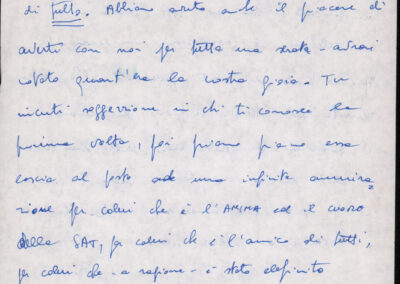 di tutto. Abbiamo avuto anche il piacere di
averti con noi per tutta una serata - avrai
notato quant'era la nostra gioia. Tu
incuti soggezione in chi ti conosce la
prima volta, poi piano piano essa
lascia al posto ad una infinita ammira
zione per colui che è l'ANIMA ed il cuore
della SAT, per colui che è l'amico di tutti,
per colui che - a ragione - è stato definito